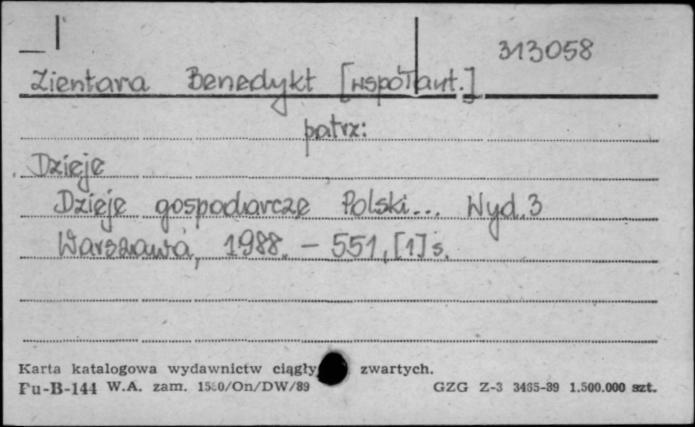 313058
Zientara Benedykt [współaut.]
patrz:
Dzieje
Dzieje gospodarcze Polski... Wyd. 3
Warszawa, 1988. - 551, [1] s.
Karta katalogowa wydawnictw ciągły zwartych.
Pu-B-144 W.A. zam. /On/DW/89 GZG Z-3 3485-89 1.500.000 szt.